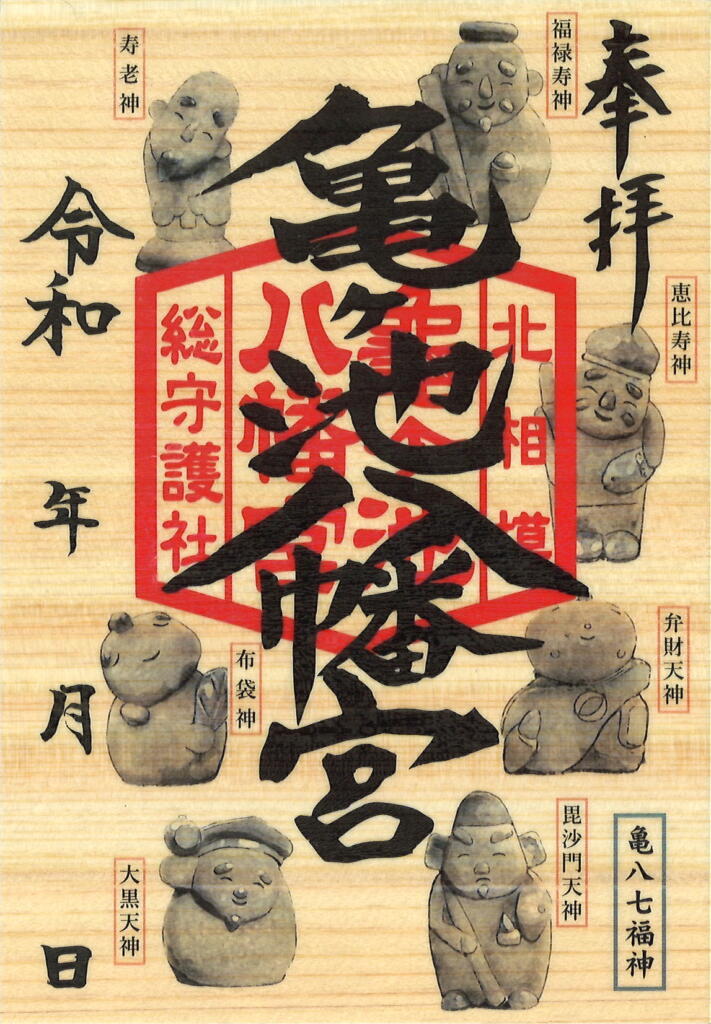 奉拝
福禄寿神
寿老神
恵比寿神
亀ヶ池八幡宮
北相模
亀ヶ池
八幡宮
総守護社
弁財天神
布袋神
毘沙門天神
大黒天神
亀八七福神
令和 年 月 日